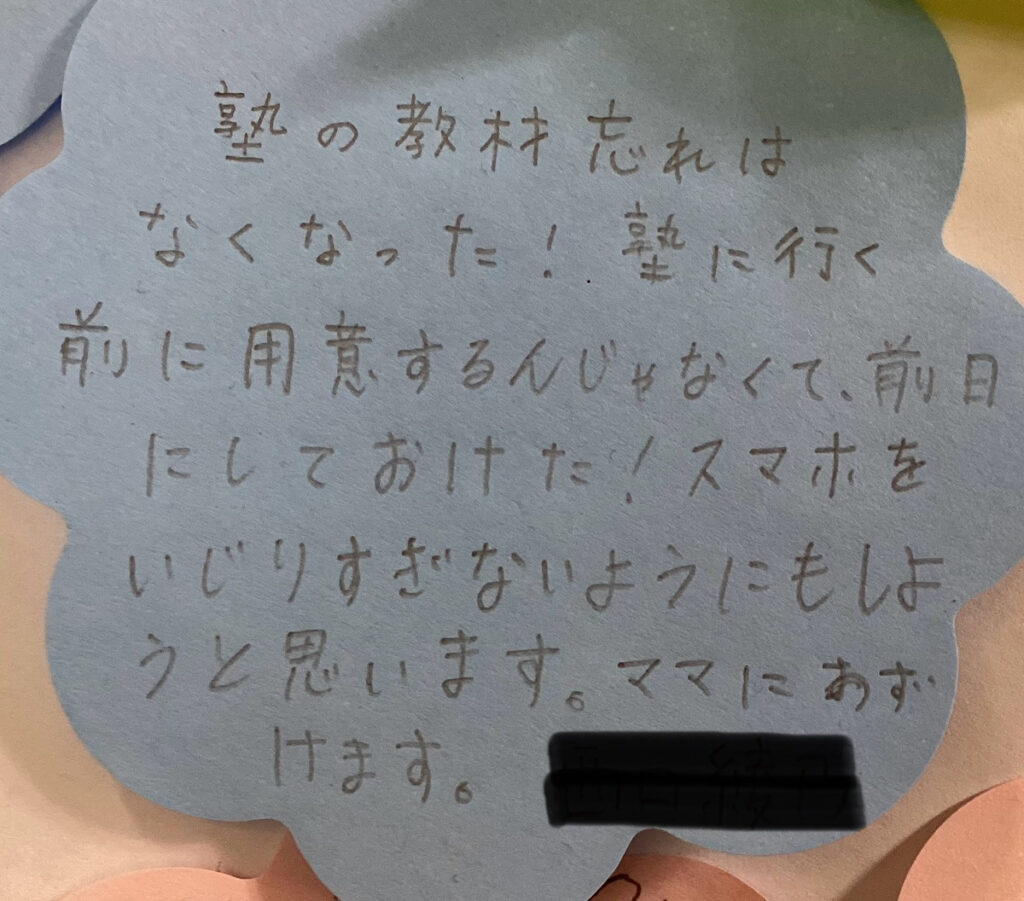 塾の教材忘れは
なくなった!塾に行く
前に用意するんじゃなくて、前日
にしておけた!スマホを
いじりすぎないようにもしよ
うと思います。ママにあず
けます。